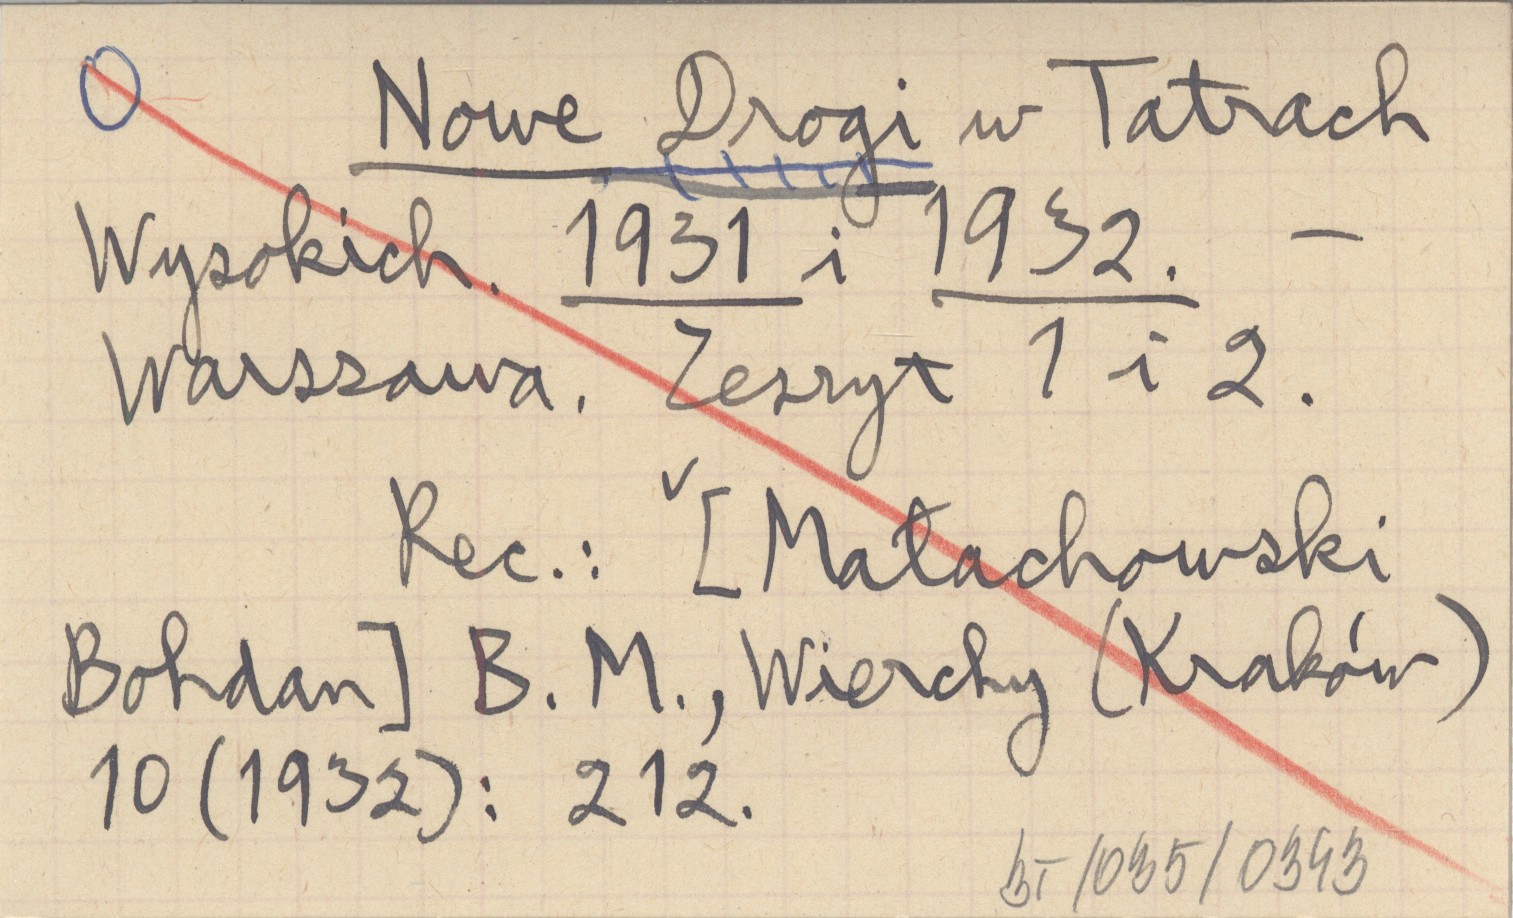 Nowe Drogi w Tatrach
Wysokich. 1931 i 1932. –
Warszawa. Zeszyt 1 i 2.
Rec.: [Małachowski
Bohdan] B. M., Wierchy (Kraków)
10 (1932): 212.
BT/035/0343